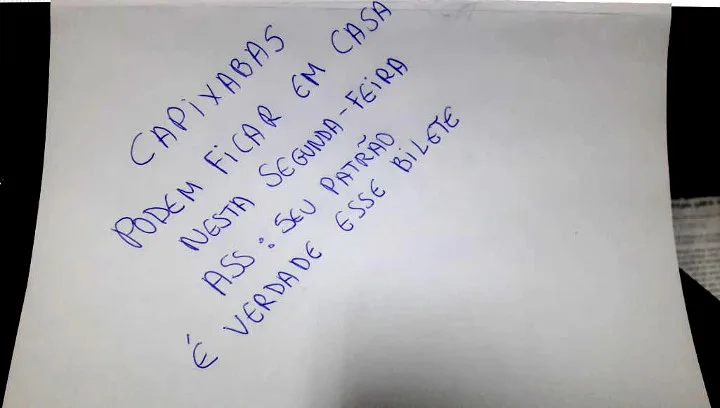 CAPIXABAS
PODEM FICAR EM CASA
NESTA SEGUNDA-FEIRA
ASS: SEU PATRÃO
É VERDADE ESSE BILETE